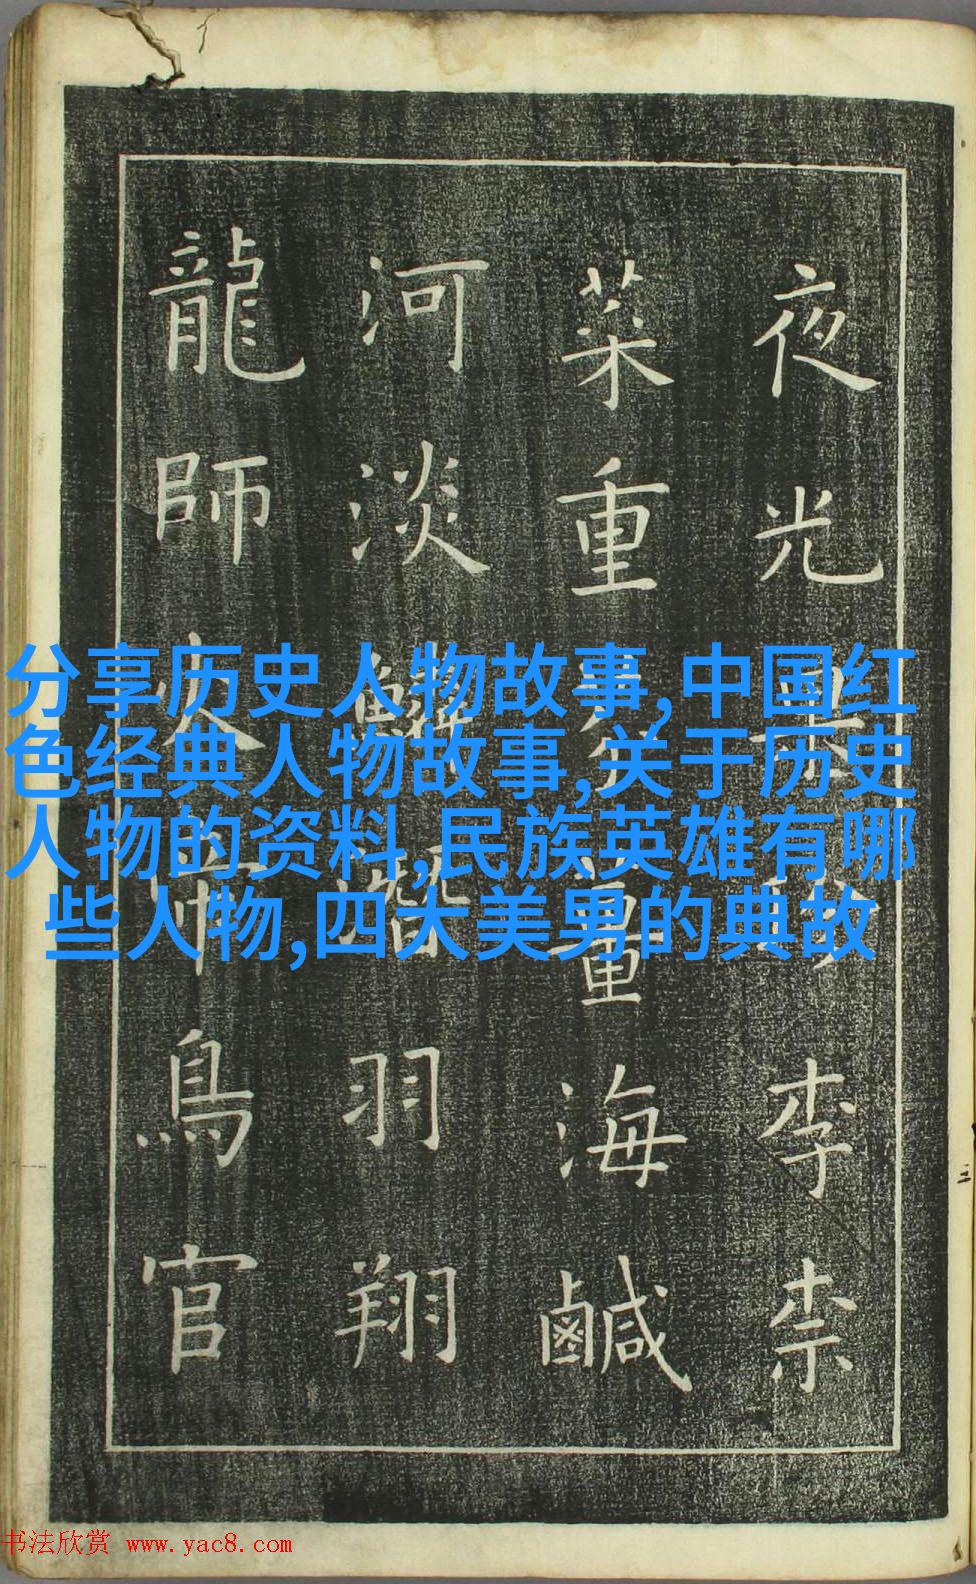 夜光果李柰
菜重薑海鹹
河淡鱗潛羽翔
龍師火帝鳥官
分享历史人物故事,中国红
色经典人物故事,关于历史
人物的资料,民族英雄有哪
些人物,四大美男的典故
书法欣赏 www.yac8.com